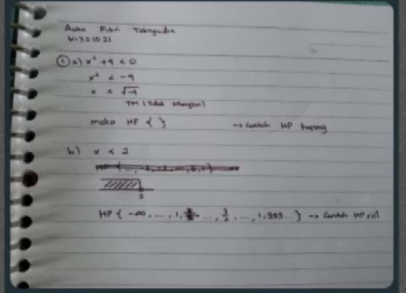 Fitri
K1321021
① a) x² + 9 < 0
x² < -9
x < √-9
TM (tidak mungkin)
maka HP { }
→ Contoh HP kosong
b) x < 2
2
HP { -∞, ..., 1, ..., 3/2, ..., 1,999... } → Contoh HP riil